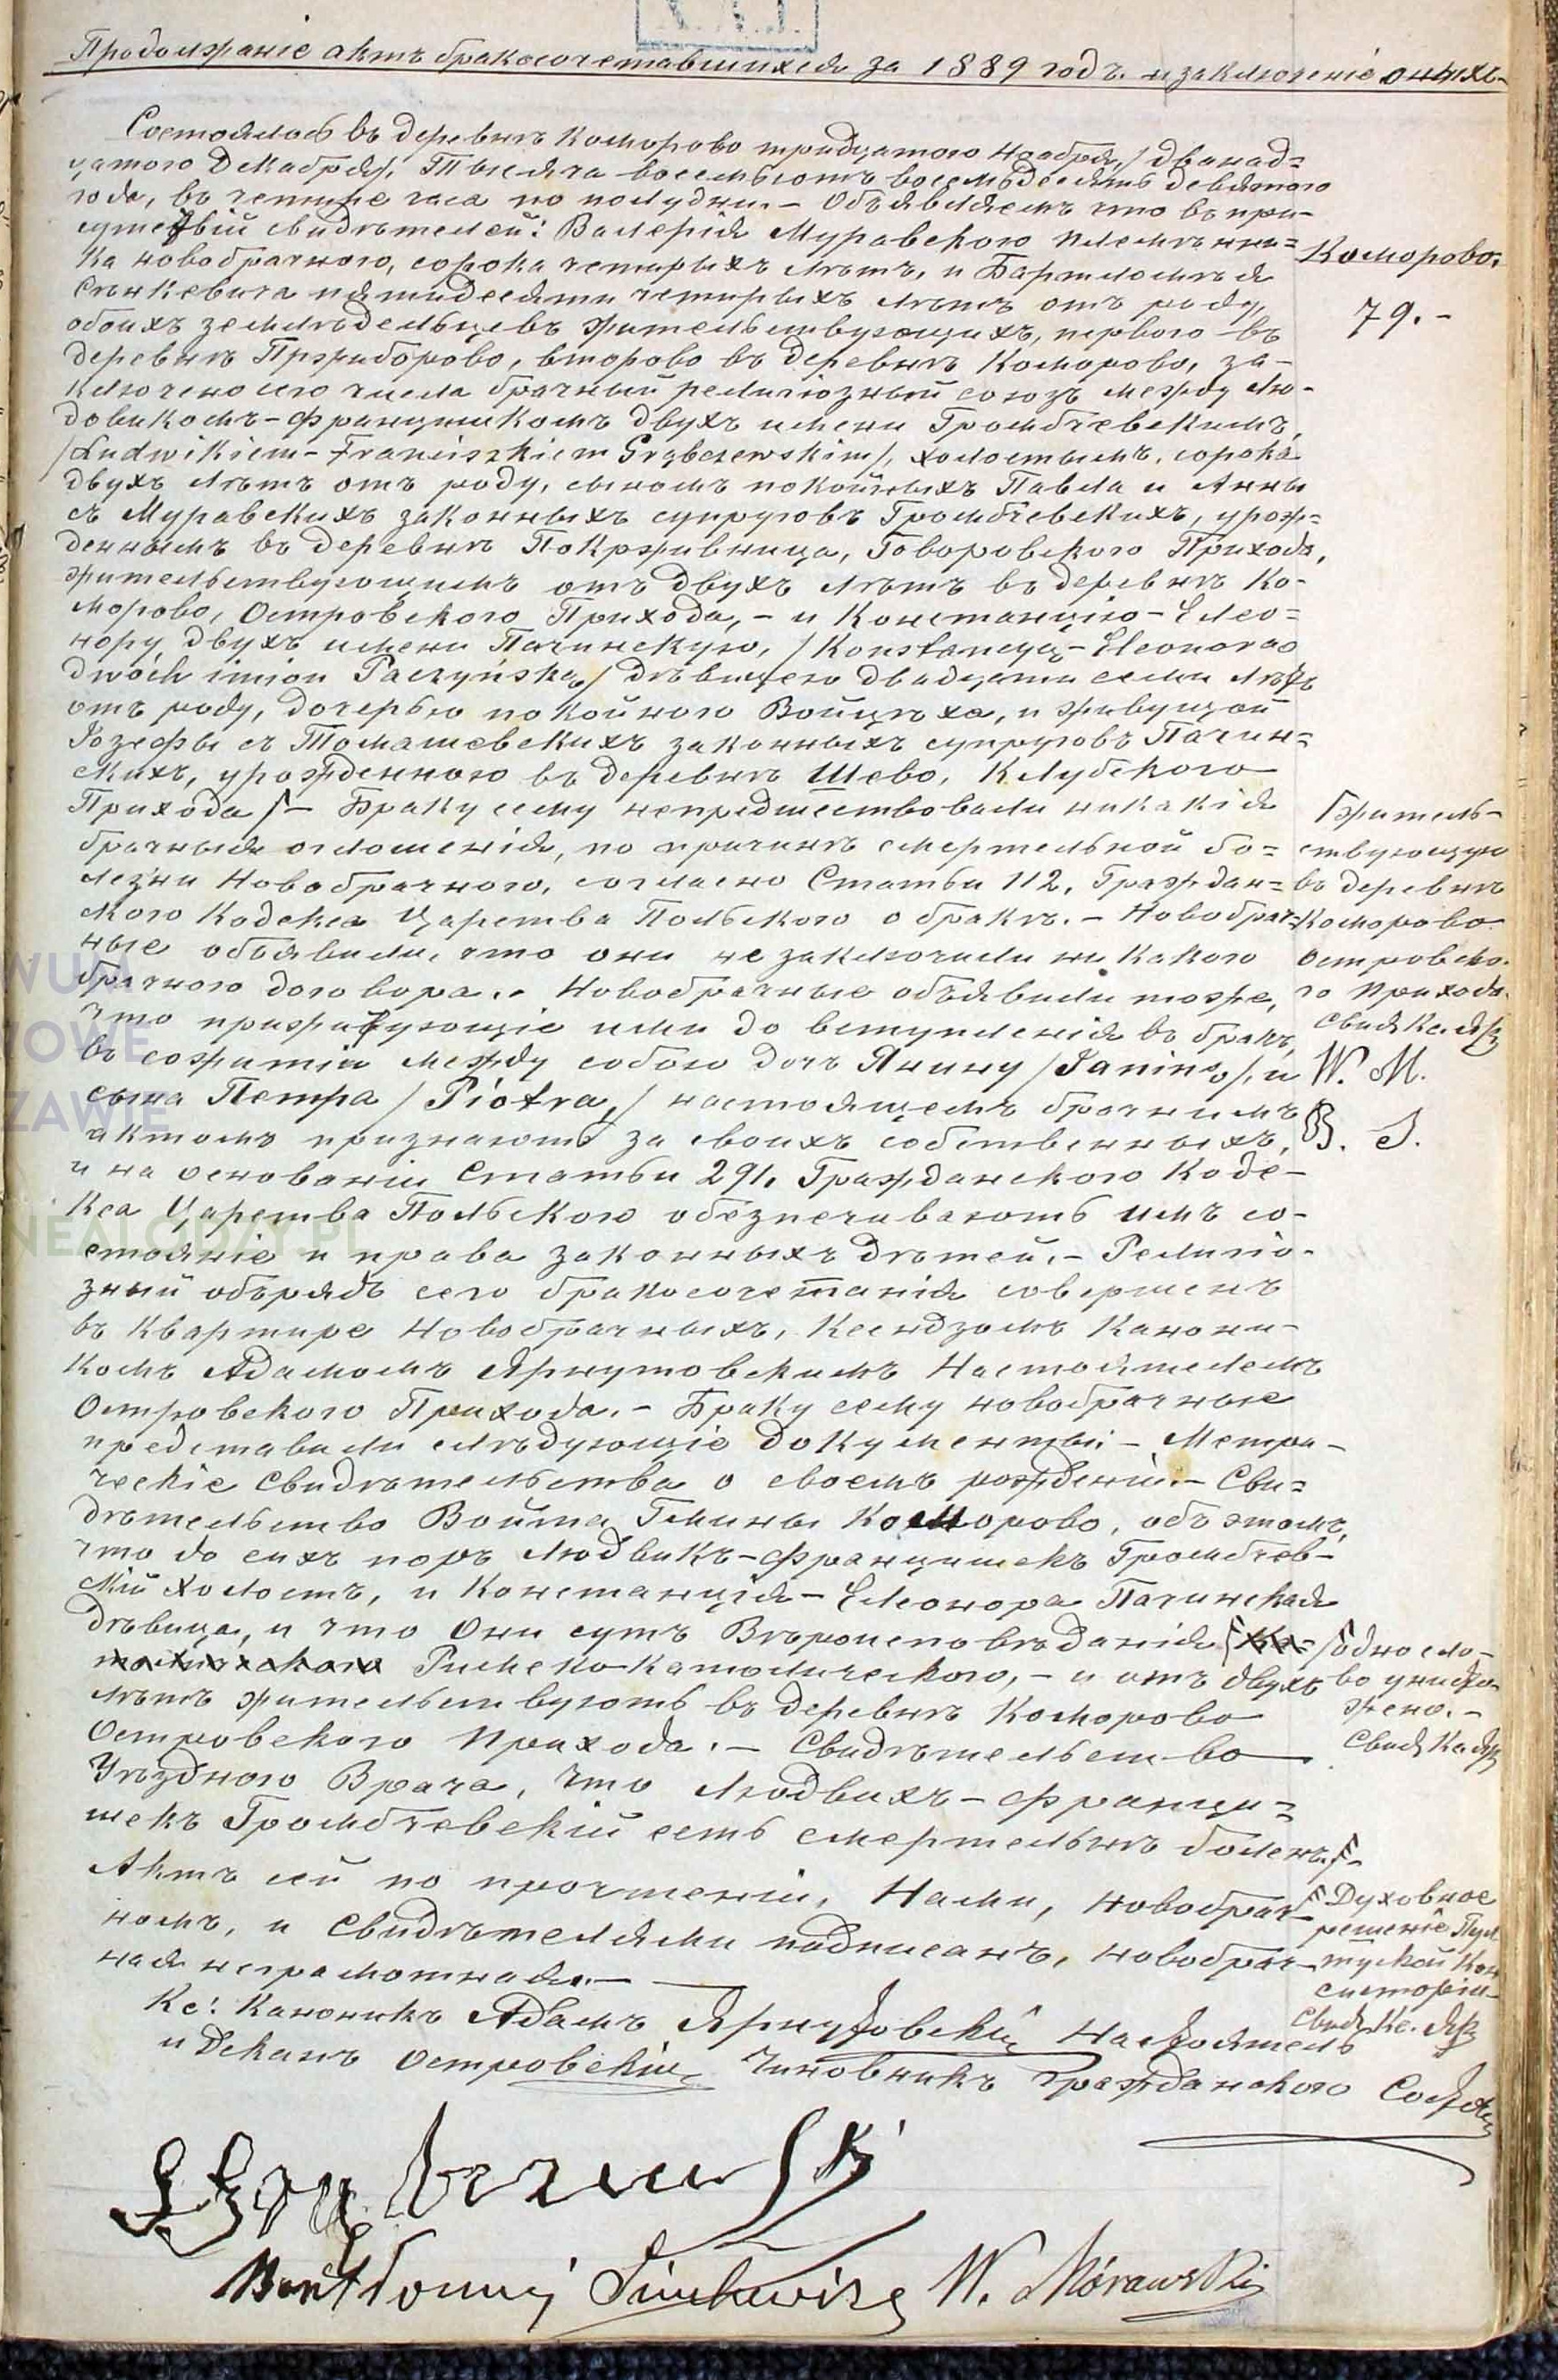 Продолженіе актъ бракосочетавшихся за 1889 годъ. и заключеніе оныхъ
Состоялось въ деревнѣ Коморово тридцатого Ноября / двѣнад=
цатого Декабря /, Тысяча восемьсотъ восемьдесятъ девятого
года, въ четыре часа по полудни. – Объявляемъ что въ при-
сутствіи свидѣтелей: Валерія Муравского племянни=
ка новобрачного, сорока четырыхъ лѣтъ, и Бартломѣя
Сѣнкевича пятидесяти четырыхъ лѣтъ отъ роду,
обоихъ земледѣльцевъ жительствующихъ, первого въ
деревнѣ Пржиборово, второво въ деревнѣ Коморово, за-
ключено сего числа брачный религіозный союзъ между Лю-
довикомъ-Францишкомъ двухъ имени Громбчевскимъ,
/Ludwikiem-Franciszkiem Grąbczewskim/, холостымъ, сорока
двухъ лѣтъ отъ роду, сыномъ покойныхъ Павла и Анны
съ Муравскихъ законныхъ супруговъ Громбчевскихъ, урож=
деннымъ въ деревнѣ Покрживница, Говоровского Прихода,
жительствующимъ отъ двухъ лѣтъ въ деревнѣ Ко-
морово, Островского Прихода, – и Констанцію-Елео=
нору, двухъ имени Пачинскую, /Konstancyą-Eleonorą
dwóch imion Paczyńską/ дѣвицею двадцати семи лѣтъ
отъ роду, дочерью покойного Войцѣха, и живущой
Іозефы съ Томашевскихъ законныхъ супруговъ Пачин=
скихъ, урожденною въ деревнѣ Шево, Клубского
Прихода ſ– Браку сему непредшествовали никакія
брачныя оглошенія, по причинѣ смертельной бо=
лезни Новобрачного, согласно Статьи 112, Граждан=
ского Кодекса Царства Польского о бракѣ. – Новобрач=
ные объявили, что они не заключили никакого
брачного договора. – Новобрачные объявили тоже,
что прижитующіе ими до вступленія въ бракъ,
въ сожитіи между собою дочь Янину /Janinę/, и
сына Петра /Piotra,/ настоящемъ брачнымъ
актомъ признаютъ за своихъ собственныхъ,
и на основаніи Статьи 291, Гражданского Коде-
кса Царства Польского обезпечиваютъ имъ со-
стояніе и права законныхъ дѣтей. – Религіо-
зный обърядъ сего бракосочетанія совершенъ
въ квартире Новобрачныхъ, Ксендзомъ Канони-
комъ Адамомъ Ярнутовскимъ Настоятелемъ
Островского Прихода. – Браку сему новобрачные
представили слѣдующіе документы: – Метри-
ческіе Свидѣтельства о своемъ рожденіи. – Сви=
дѣтельство Войта Гмины Коморово, объ этомъ,
что до сихъ поръ Людвикъ-Францишекъ Громбчев-
скій холостъ, и Констанція-Елеонора Пачинская
дѣвица, и что Они суть Вѣроисповѣданія
Римско-Католического, – и отъ двухъ
лѣтъ жительствуютъ въ деревнѣ Коморово
Островского Прихода. – Свидѣтельство
Уѣздного Врача, что Людвихъ-Франци=
шекъ Громбчевскій есть смертельнѣ боленъ. ſ–
Актъ сей по прочтеніи, Нами, новобрач-
номъ, и свидѣтелями подписанъ, новобрач-
ная неграмотная. –
Кс: Каноникъ Адамъ Ярнутовскій Настоятель
и Деканъ Островскій, Чиновникъ Гражданского Состоя
Bartłomiej Sinkiewicz W. Morawski
Коморово.
79. –
ſжитель-
ствующую
въ деревнѣ
Коморово
Островско-
го Прихода.
W. M.
B. S.
ſодно сло-
во уничто-
жено. –
ſДуховное
решеніе Пул
туской Кон
систоріи